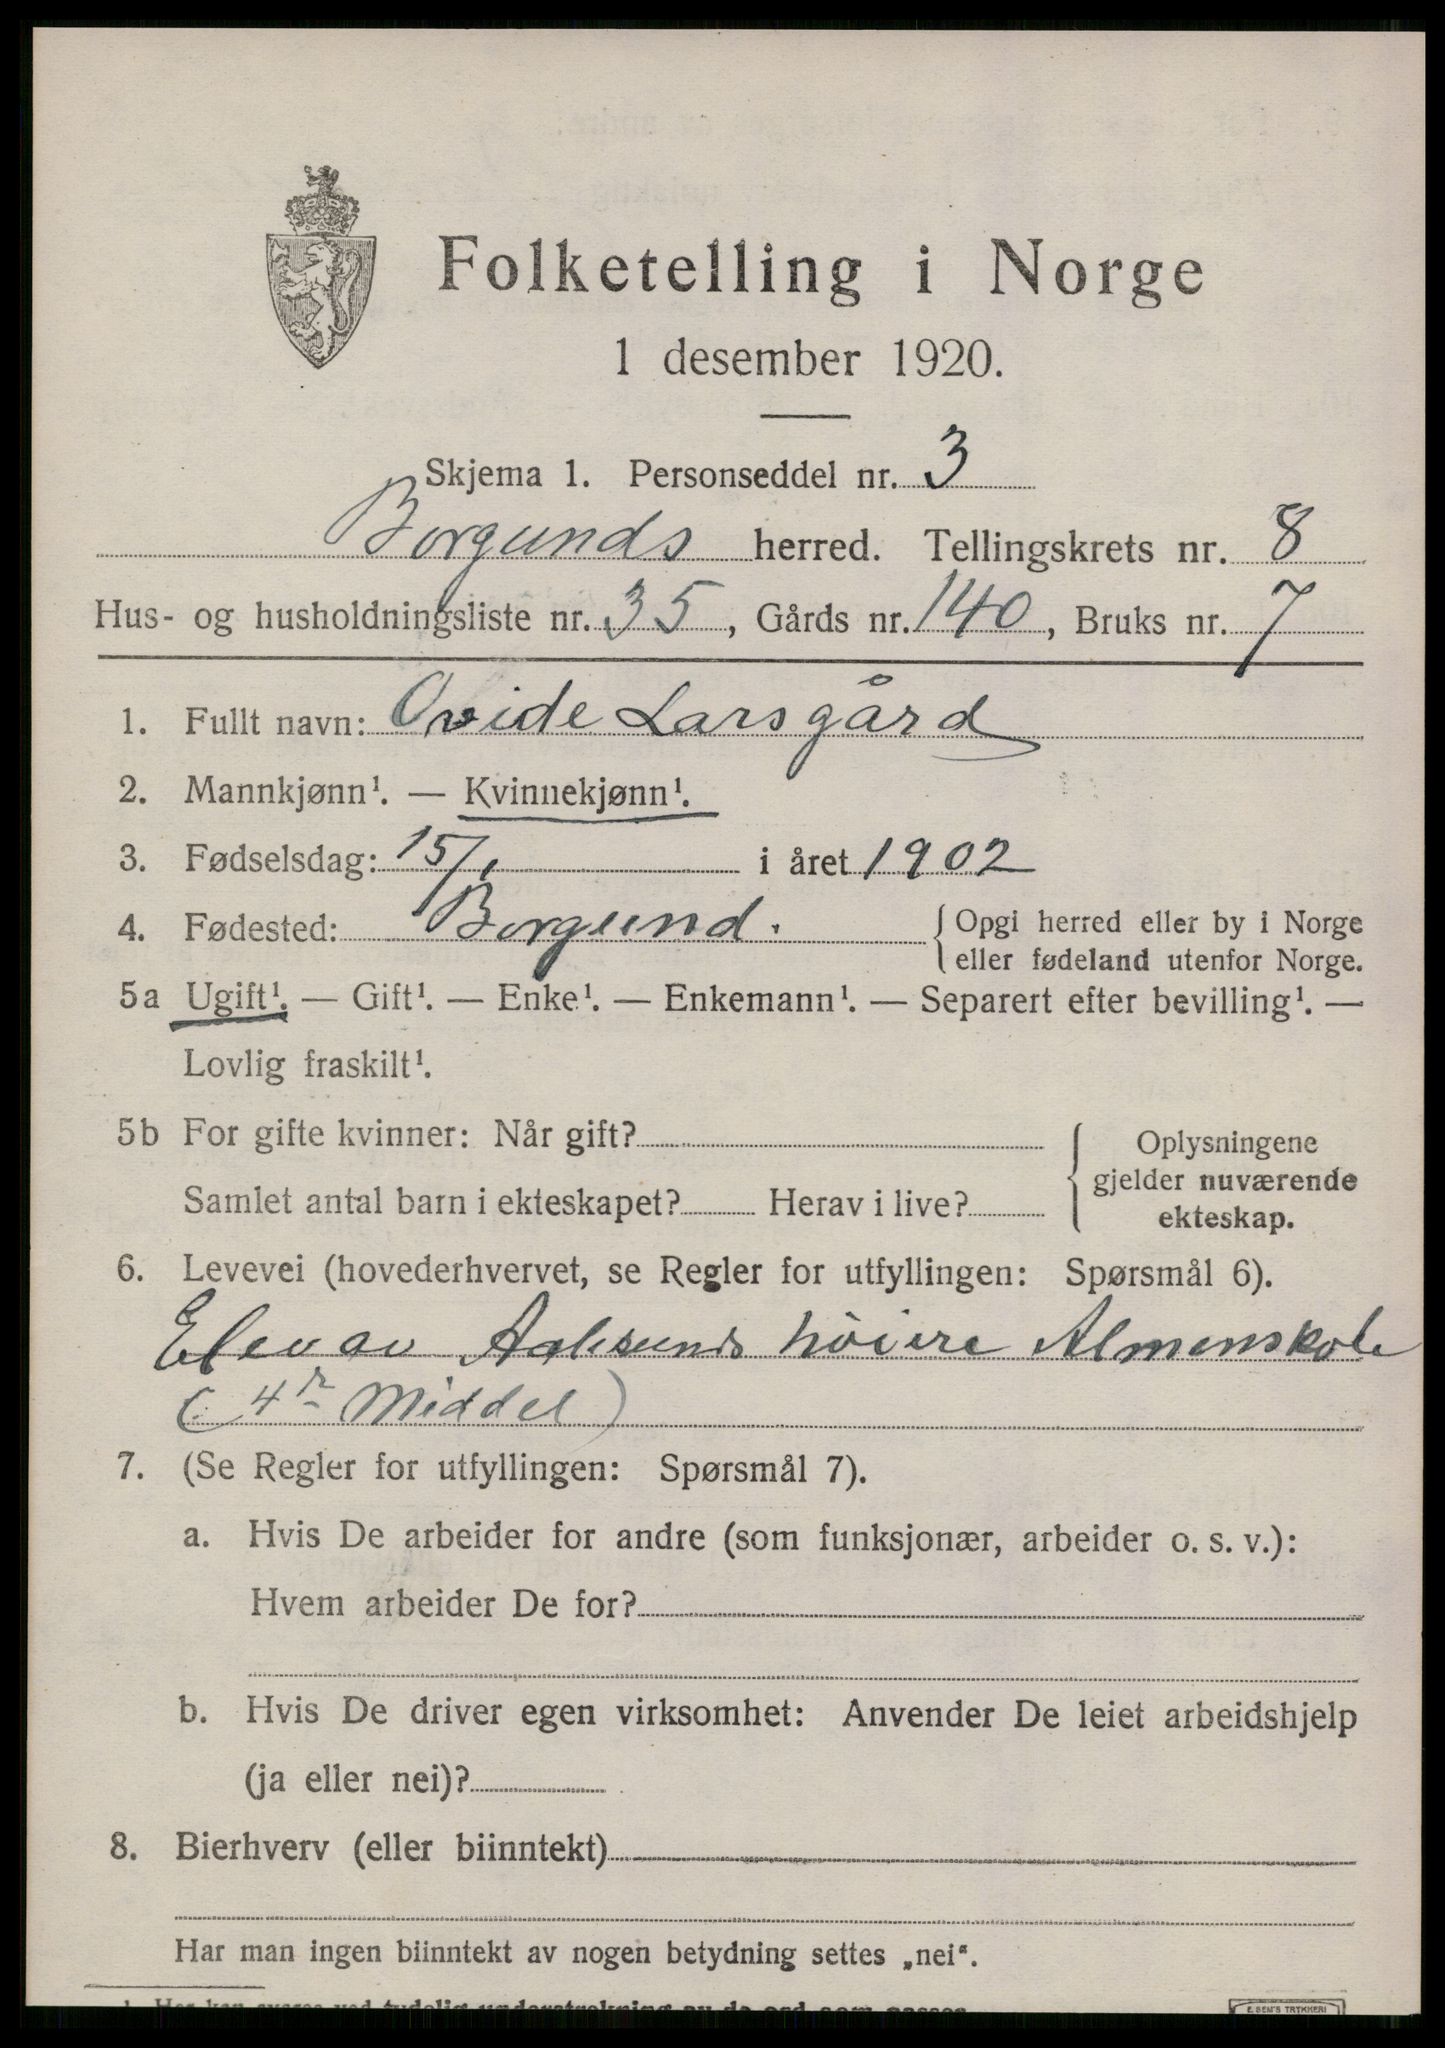 Folketelling i Norge
1 desember 1920.
Skjema 1. Personseddel nr. 3
Borgunds herred. Tellingskrets nr. 8
Hus- og husholdningsliste nr. 35, Gårds nr. 140, Bruks nr. 7
1. Fullt navn: Ovide Larsgård
2. Mannkjønn¹. — Kvinnekjønn¹.
3. Fødselsdag: 15/1 i året 1902
4. Fødested: Borgund. { Opgi herred eller by i Norge
eller fødeland utenfor Norge.
5a Ugift¹. — Gift¹. — Enke¹. — Enkemann¹. — Separert efter bevilling¹. —
Lovlig fraskilt¹.
5b For gifte kvinner: Når gift?
Samlet antal barn i ekteskapet? Herav i live?
{ Oplysningene
gjelder nuværende
ekteskap.
6. Levevei (hovederhvervet, se Regler for utfyllingen: Spørsmål 6).
Elev av Aalesunds høiere Almenskole
(: 4r Middel)
7. (Se Regler for utfyllingen: Spørsmål 7).
a. Hvis De arbeider for andre (som funksjonær, arbeider o. s. v.):
Hvem arbeider De for?
b. Hvis De driver egen virksomhet: Anvender De leiet arbeidshjelp
(ja eller nei)?
8. Bierhverv (eller biinntekt)
Har man ingen biinntekt av nogen betydning settes „nei“.
E. SEM'S TRYKKERI